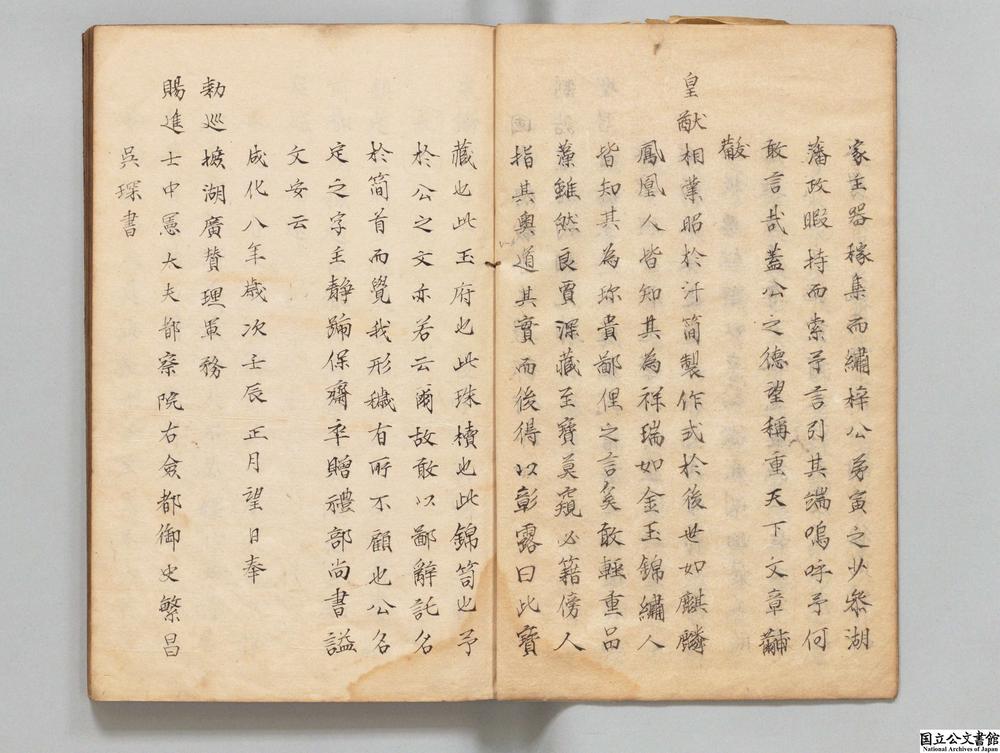 家主器稼集而繡梓公弟寅之少參湖
藩政暇持而索予言引其端嗚呼予何
敢言哉蓋公之德望稱重天下文章黼
黻
皇猷相業昭於汗簡製作式於後世如麒麟
鳳凰人皆知其為祥瑞如金玉錦繡人
皆知其為珎貴鄙俚之言奚敢輕重品
藻雖然良賈深藏至寶莫窺必籍傍人
指其奧道其實而後得以彰露曰此寶
藏也此玉府也此珠櫝也此錦笥也予
於公之文亦若云爾故敢以鄙辭託名
於简首而覺我形穢有所不顧也公名
定之字主靜號保齋卒贈禮部尚書謚
文安云
成化八年歲次壬辰正月望日奉
勅巡撫湖廣贊理軍務
賜進士中憲大夫都察院右僉都御史繁昌
吳琛書
国立公文書館
National Archives of Japan